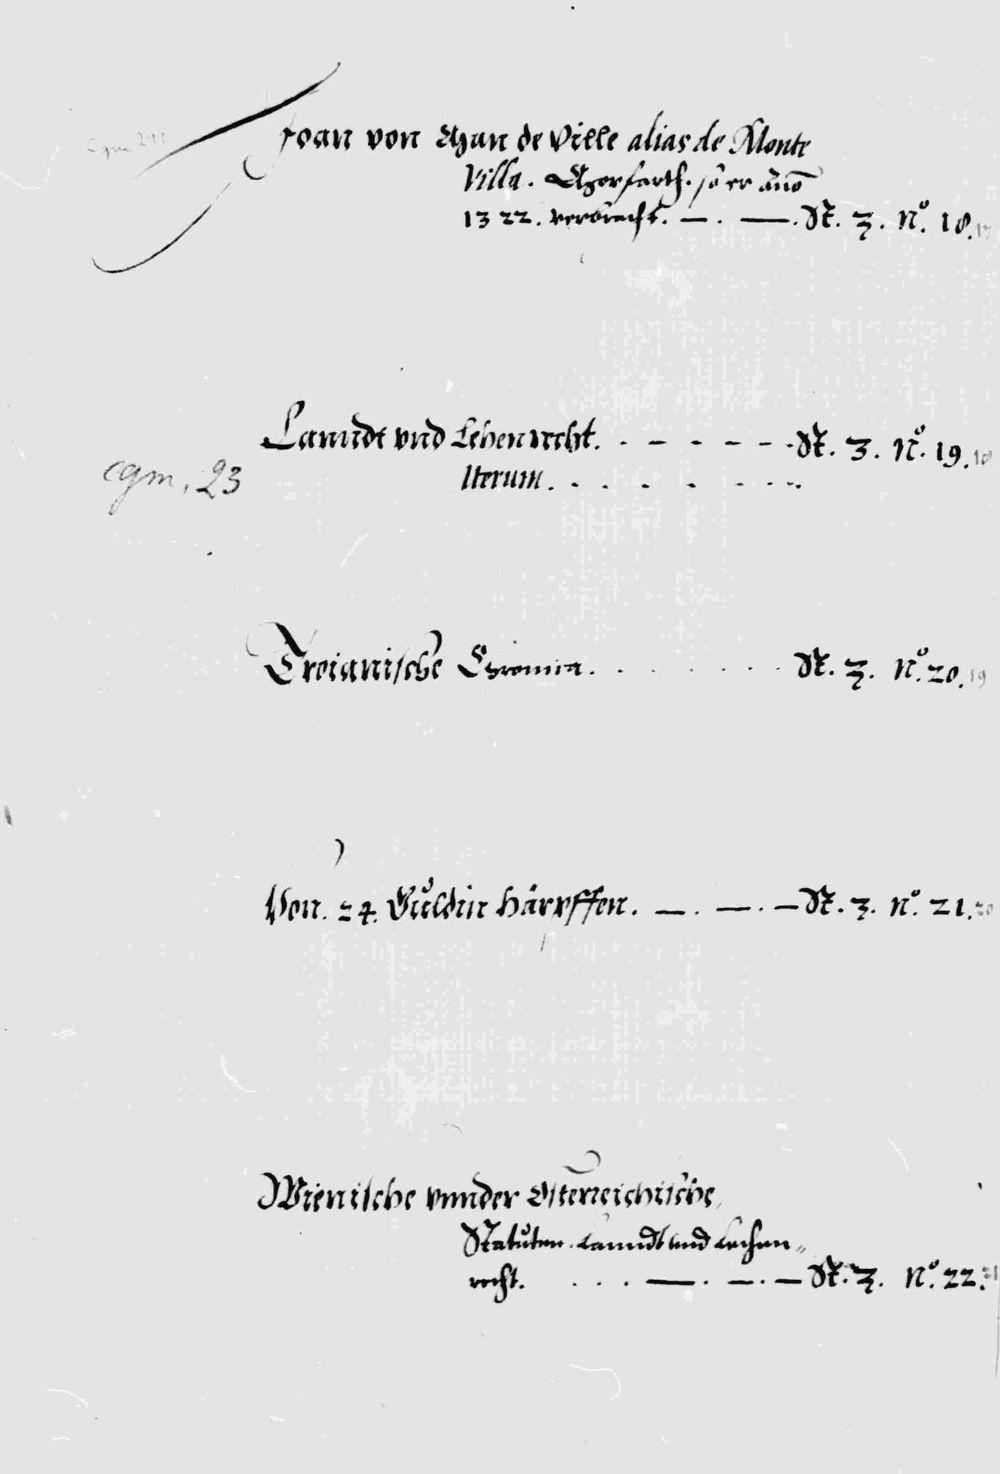 Joan von Man de Ville alias de Monte
Villa. Mörfarth. so er anno
1322. verbracht. — . — . St. 3. No. 18.
cgm 241
Lanndt vnd Lehenrecht. . - - - - - . St. 3. No. 19. 18
cgm. 23
Iterum. . . . . . - - . .
Troianische Chronica. . . . . . . St. 3. No. 20. 19
Von. 24. Guldin Härpffen. — . — . — St. 3. No. 21. 20
Wienische vnnder Österreichische,
Statuten. Lanndt vnd Lechen„
recht. . . . — . — . — St. 3. No. 22. 21